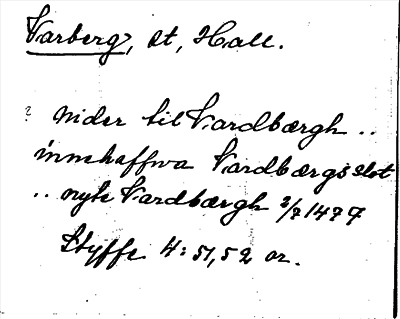 Varberg, st, Hall.
? nider til Vardbærgh ..
innehaffwa Vardbærgs slot
.. nyte Vardbærgh 2/7 1477
Styffe 4: 51, 52 or.